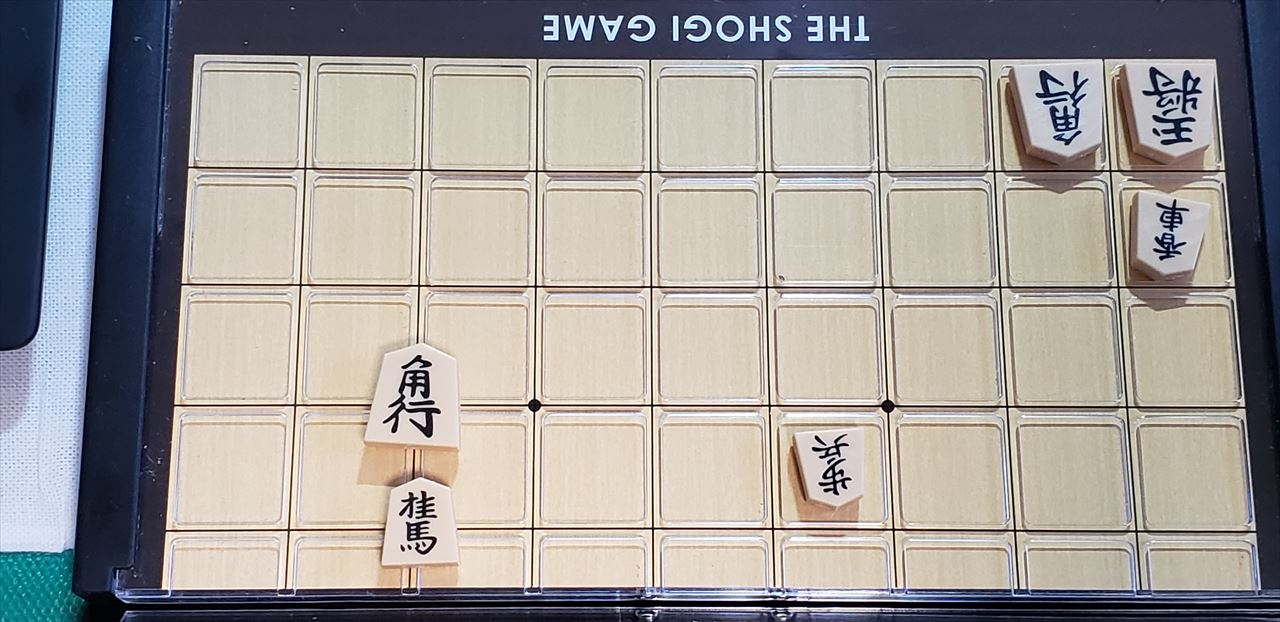 THE SHOGI GAME
角行
王将
香車
角行
歩兵
桂馬